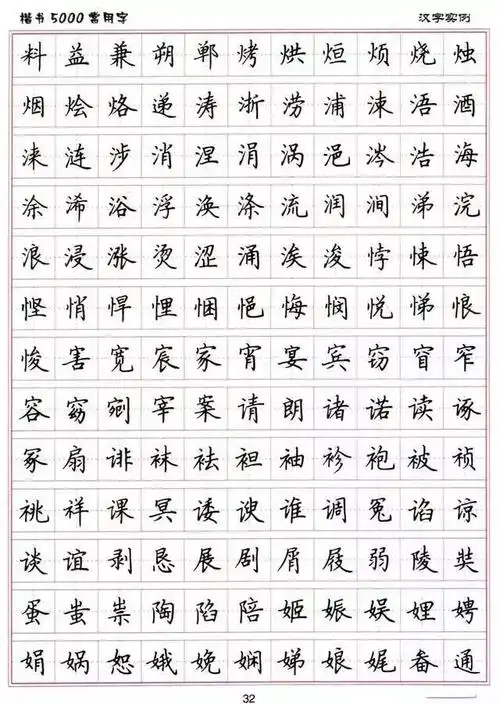 楷书5000常用字 汉字实例
料益兼朔郸烤烘烜烦烧烛
烟烩烙递涛浙涝浦涑浯酒
涞涟涉消涅涓涡浥涔浩海
涂浠浴浮涣涤流润涧涕浣
浪浸涨烫涩涌涘浚悖悚悟
悭悄悍悝悃悒悔悯悦悌悢
悛害宽宸家宵宴宾窃窅窄
容窈剜宰案请朗诸诺读诼
冢扇诽袜祛袒袖袗袍被祯
祧祥课冥诿谀谁调冤谄谅
谈谊剥恳展剧屑屐弱陵奘
蛋蚩祟陶陷陪姬娠娱娌娉
娟娲恕娥娩娴娣娘娓畚通
32